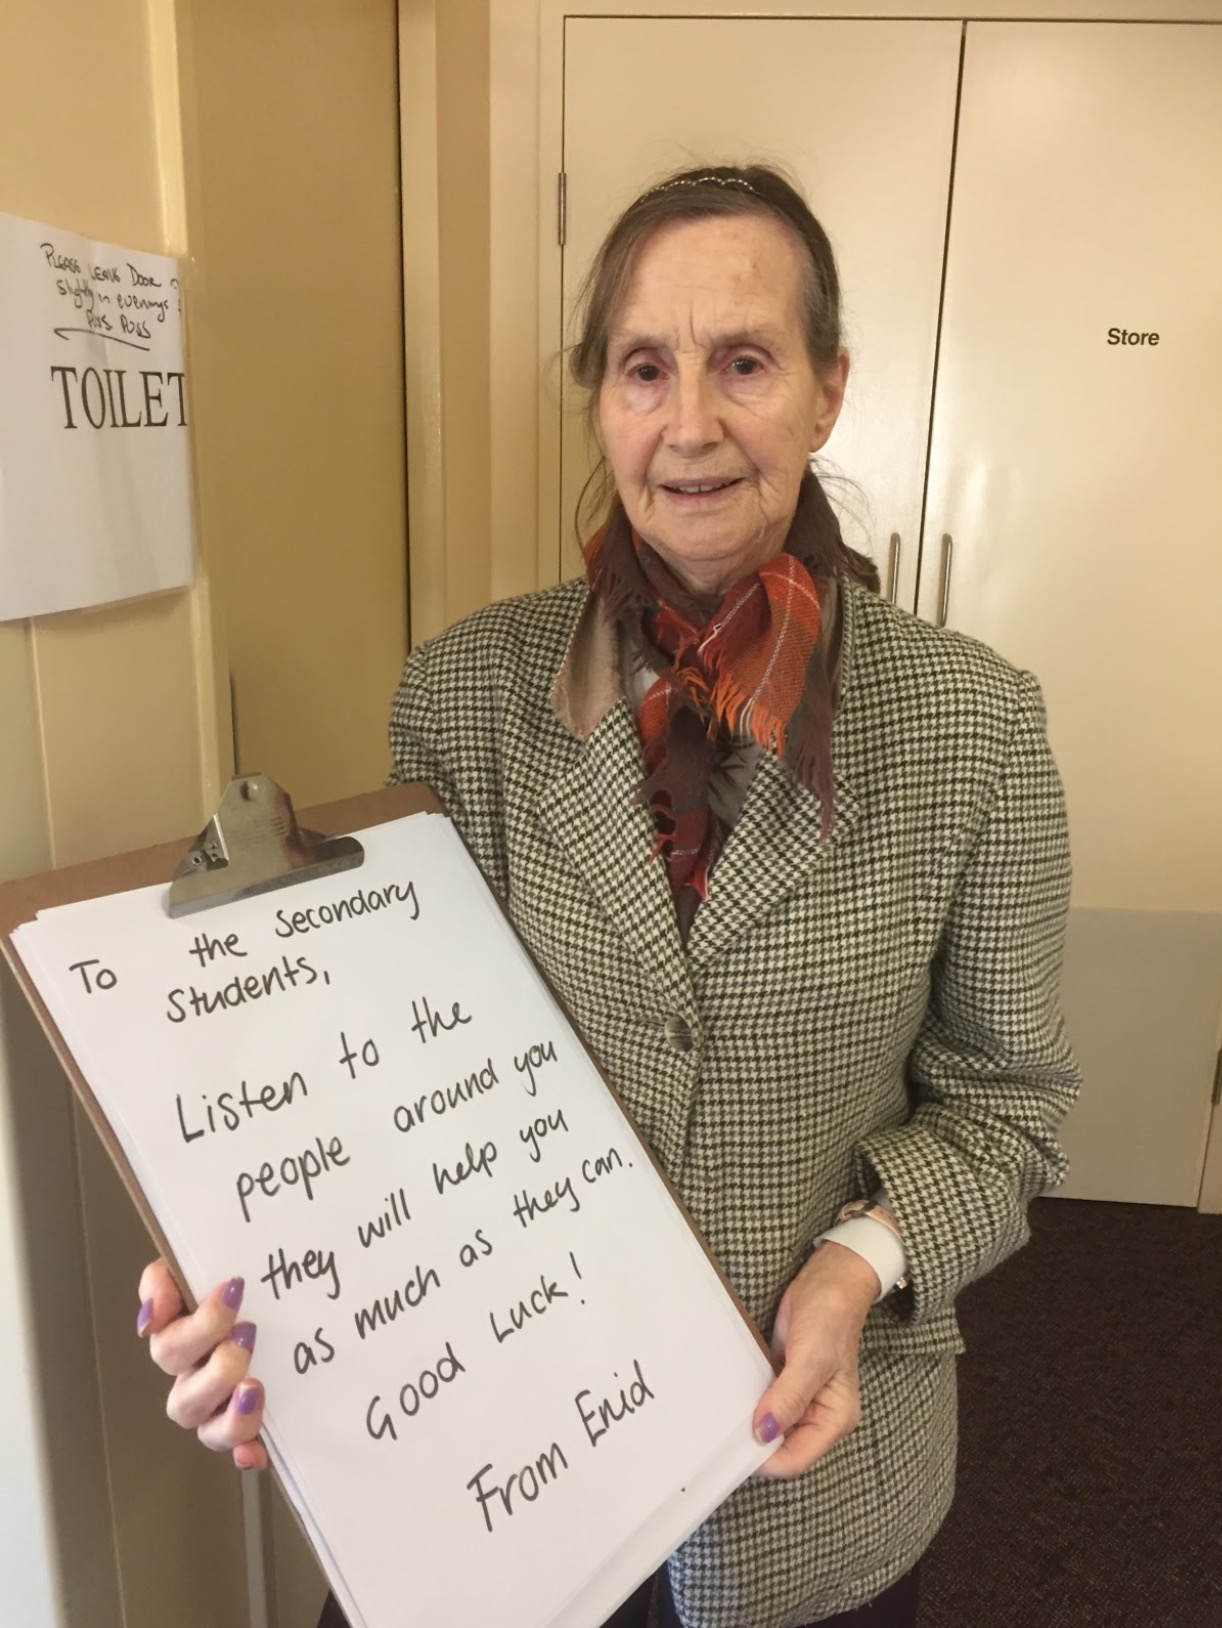 PLEASE LEAVE DOOR
slightly in evenings
PUSS PUSS
TOILET
Store
To the Secondary
Students,
Listen to the
people around you
they will help you
as much as they can.
Good Luck!
From Enid